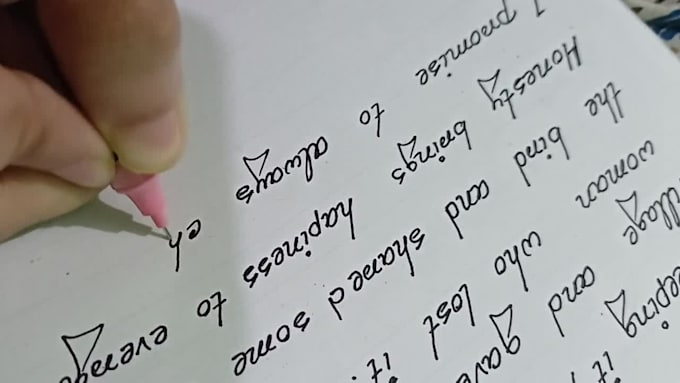 it
and gave
woman who lost it.
the bird and shared some
Honesty brings hapiness to
I promise to always ch